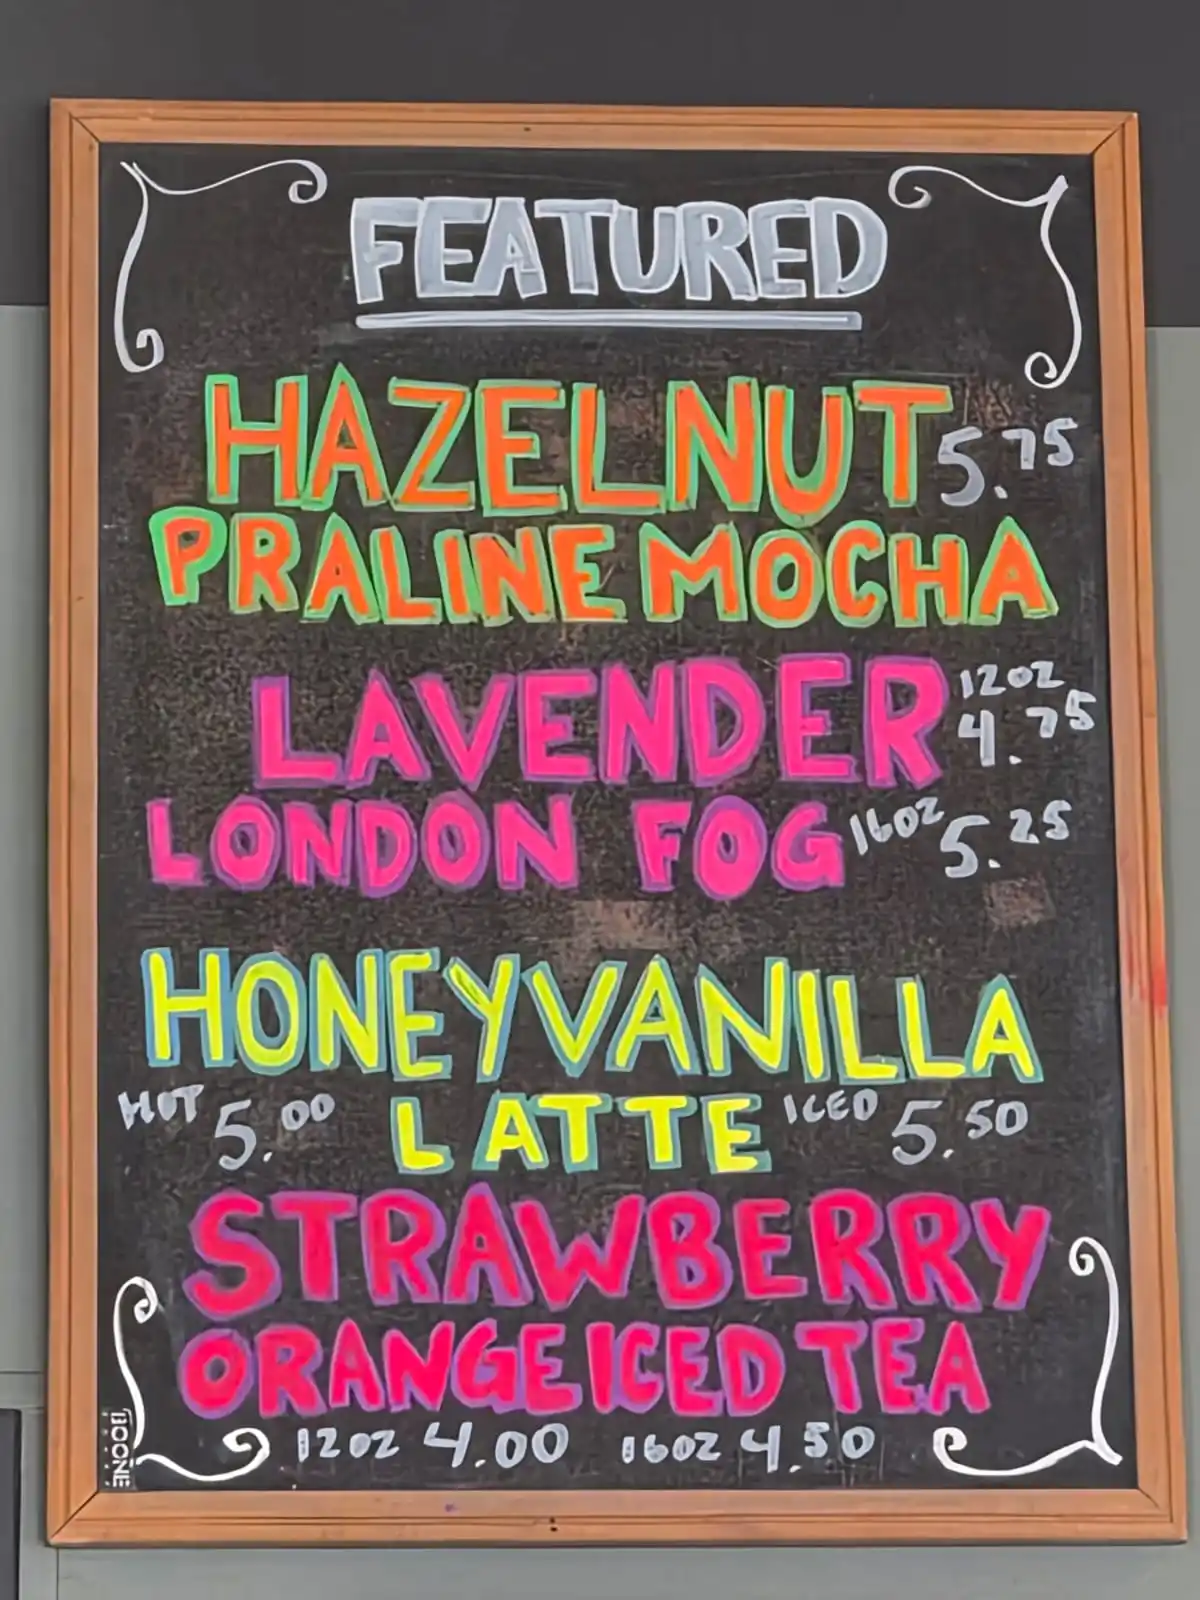 FEATURED
HAZELNUT 5.75
PRALINE MOCHA
LAVENDER 12oz 4.75
LONDON FOG 16oz 5.25
HONEY VANILLA
HOT 5.00 LATTE ICED 5.50
STRAWBERRY
ORANGE ICED TEA
12oz 4.00 16oz 4.50